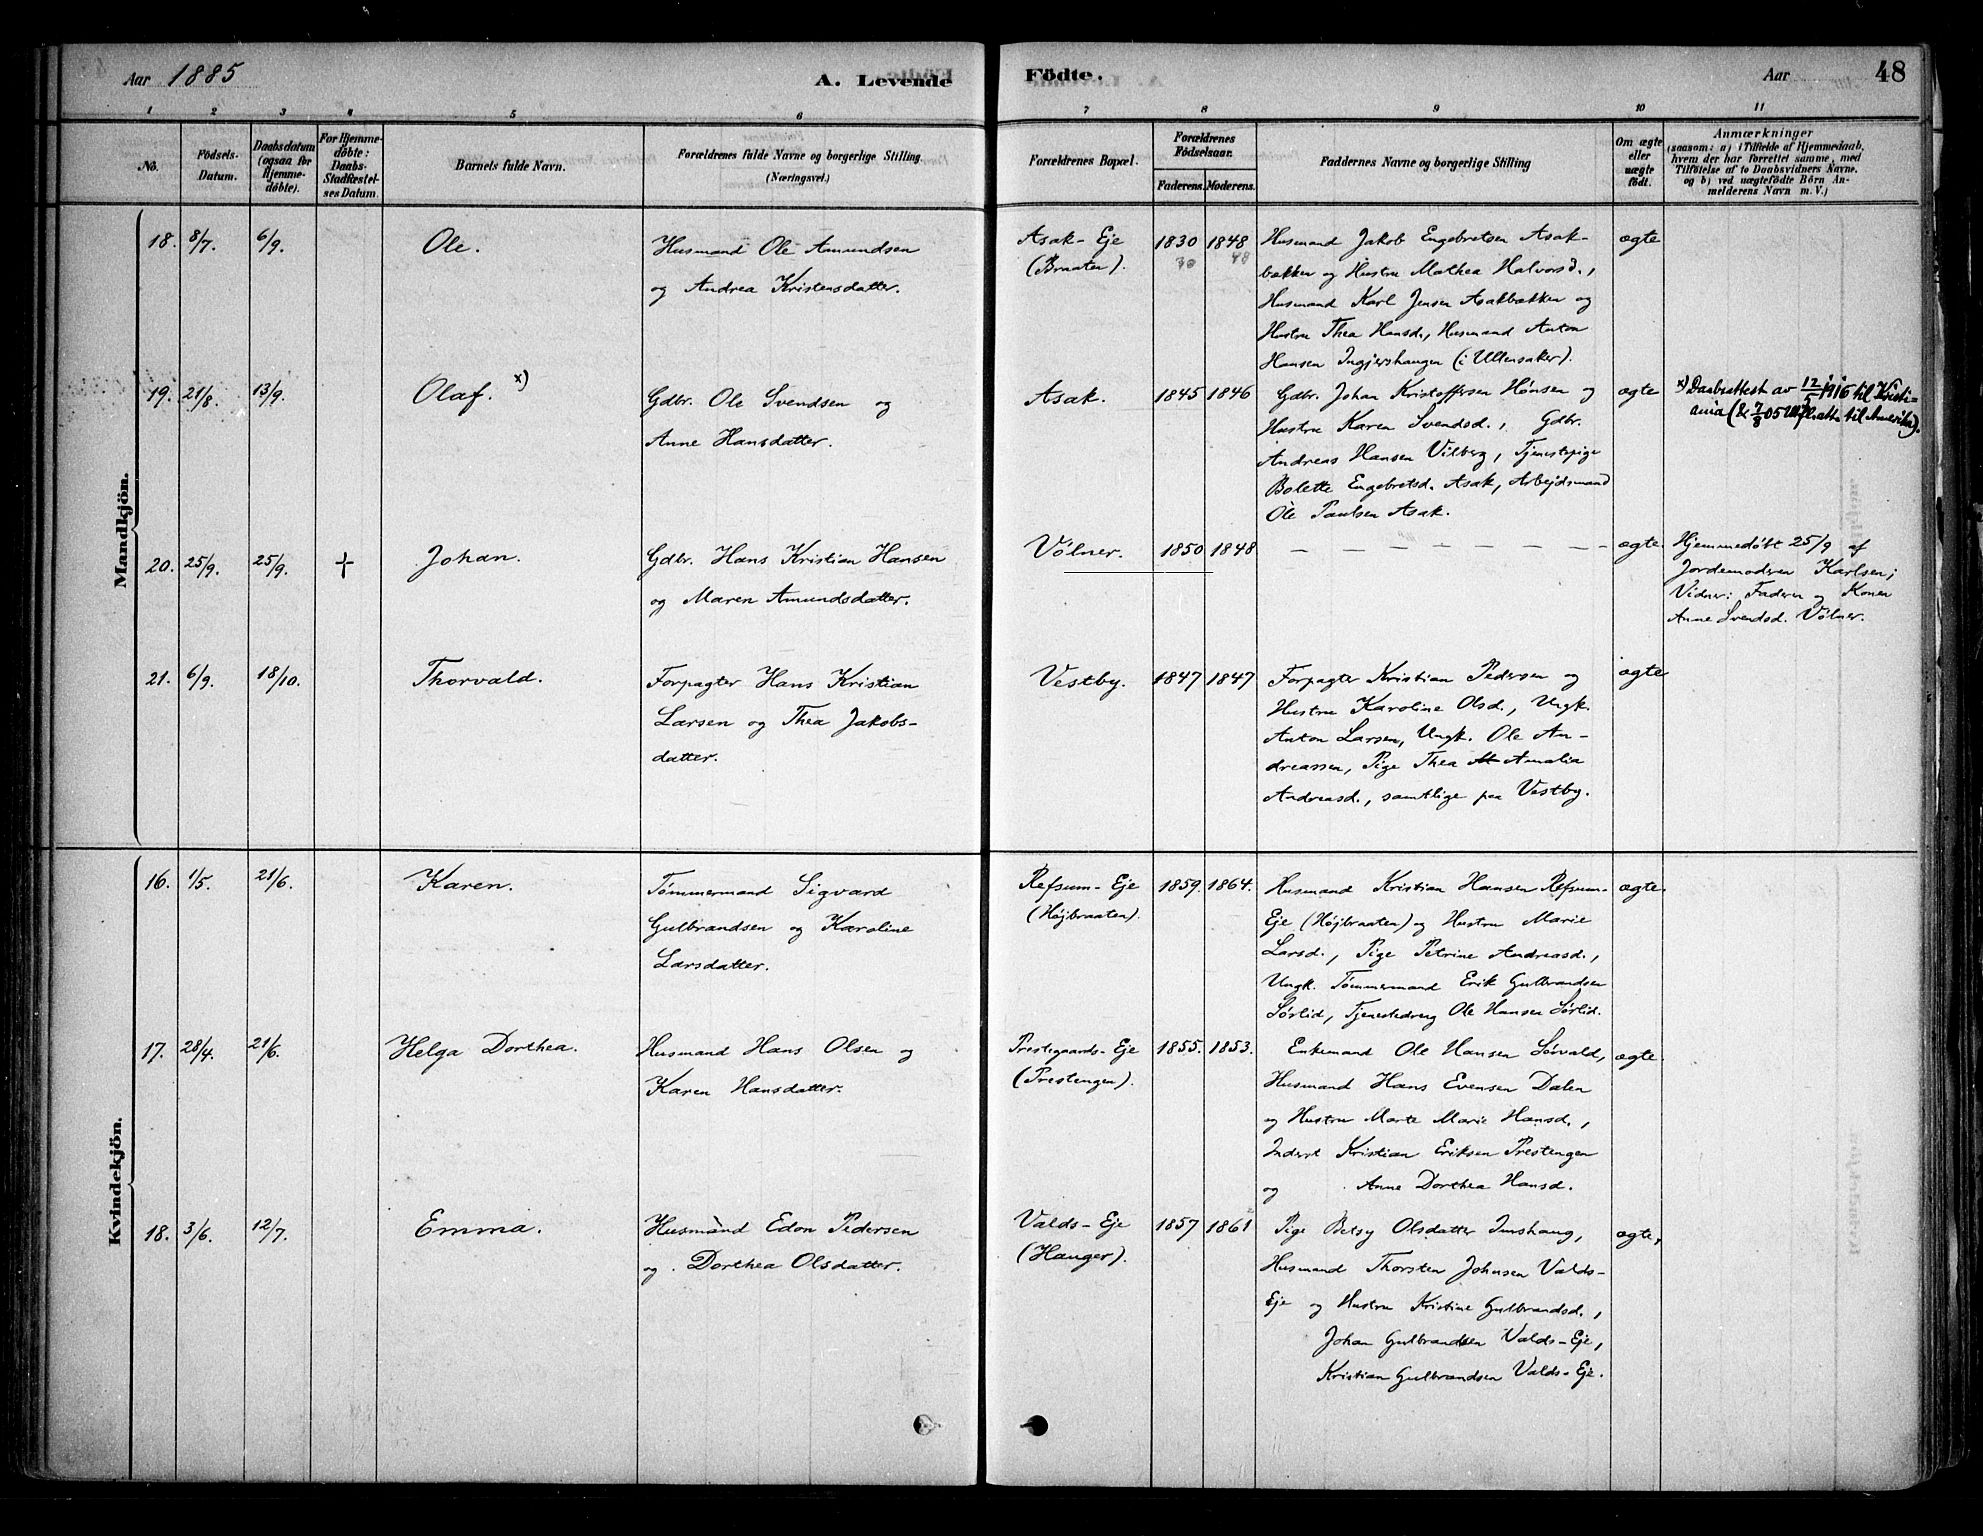 Aar 1885
A. Levende
Födte.
Aar
48
1 2 3 4 5 6 7 8 9 10 11
No.
Födsels-
Datum.
Daabsdatum
(ogsaa for
Hjemme-
döbte).
For Hjemme-
döbte:
Daabs-
Stadfæstel-
ses Datum.
Barnets fulde Navn.
Forældrenes fulde Navne og borgerlige Stilling.
(Næringsvei.)
Forældrenes Bopæl.
Forældrenes
Födselsaar.
Faderens. Moderens.
Faddernes Navne og borgerlige Stilling
Om ægte
eller
uægte
födt.
Anmærkninger
(saasom: a) i Tilfælde af Hjemmedaab,
hvem der har forrettet samme, med
Tilföielse af to Daabsvidners Navne.
og b) ved uægtefödte Börn An-
melderens Navn m. V.)
Mandkjön.
18. 8/7. 6/9. Ole.
Husmand Ole Amundsen
og Andrea Kristensdatter.
Asak-Eje
(Braaten).
1830 1848
30 48
Husmand Jakob Engebretsen Asak-
bækken og Hustru Mathea Halvorsd.,
Husmand Karl Jensen Asakbækken og
Hustru Thea Hansd., Husmand Anton
Hansen Ingjershaugen (i Ullensaker).
ægte
19. 21/8. 13/9. Olaf. x)
Gdbr. Ole Svendsen og
Anne Hansdatter.
Asak.
1845 1846
Gdbr. Johan Kristoffersen Hønsen og
Hustru Karen Svendsd., Gdbr.
Andreas Hansen Vilberg, Tjenestepige
Bolette Engebretsd. Asak, Arbejdsmand
Ole Paulsen Asak.
ægte
x) Daabsattest av 12/5 1916 til Kristi-
ania (& 7/8 05 Utflatt. til Amerika).
20. 25/9. 25/9. + Johan.
Gdbr. Hans Kristian Hansen
og Maren Amundsdatter.
Vølner.
1850 1848
— — — — — — — —
ægte.
Hjemmedøbt 25/9 af
Jordemoderen Karlsen;
Vidner: Faderen og Konen
Anne Svendsd. Vølner.
21. 6/9. 18/10. Thorvald.
Forpagter Hans Kristian
Larsen og Thea Jakobs-
datter.
Vestby.
1847 1847
Forpagter Kristian Pedersen og
Hustru Karoline Olsd., Ungk.
Anton Larsen, Ungk. Ole An-
dreassen, Pige Thea Amalia
Andreasd., samtlige paa Vestby.
ægte
Kvindekjön.
16. 1/5. 21/6. Karen.
Tømmermand Sigvard
Gulbrandsen og Karoline
Larsdatter.
Refsum-Eje
(Højbraaten).
1859. 1864.
Husmand Kristian Hansen Refsum-
Eje (Højbraaten) og Hustru Marie
Larsd., Pige Petrine Andreasd.,
Ungk. Tømmermand Erik Gulbrandsen
Sørlid, Tjenestedreng Ole Hansen Sørlid.
ægte.
17. 28/4. 21/6. Helga Dorthea.
Husmand Hans Olsen og
Karen Hansdatter.
Prestegaards-Eje
(Prestengen).
1855. 1853.
Enkemand Ole Hansen Sørvald,
Husmand Hans Evensen Dalen
og Hustru Marte Marie Hansd.,
Inderst Kristian Eriksen Prestengen
og Anne Dorthea Hansd.
ægte.
18. 3/6. 12/7. Emma.
Husmand Edon Pedersen
og Dorthea Olsdatter.
Valds-Eje
(Hauger).
1857 1861
Pige Betsy Olsdatter Imshaug,
Husmand Thorsten Johnsen Valds-
Eje og Hustru Kristine Gulbrandsd.,
Johan Gulbrandsen Valds-Eje,
Kristian Gulbrandsen Valds-Eje.
ægte.